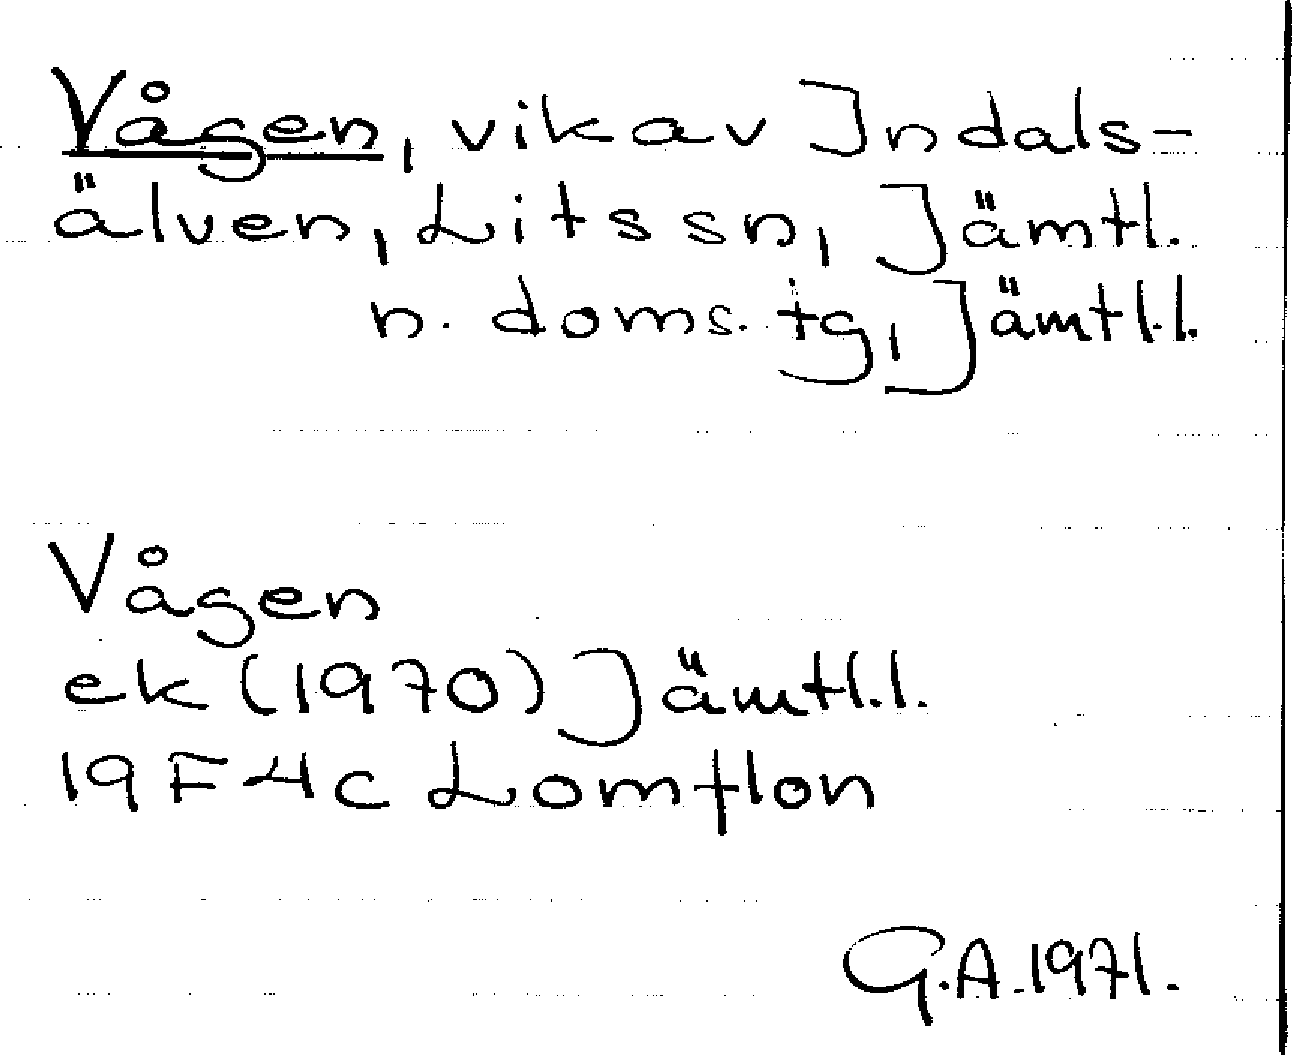 Vågen, vik av Indals-
älven, Lits sn, Jämtl.
n. doms. tg, Jämtl. l.
Vågen
ek (1970) Jämtl. l.
19 F 4c Lomflon
G.A. 1971.